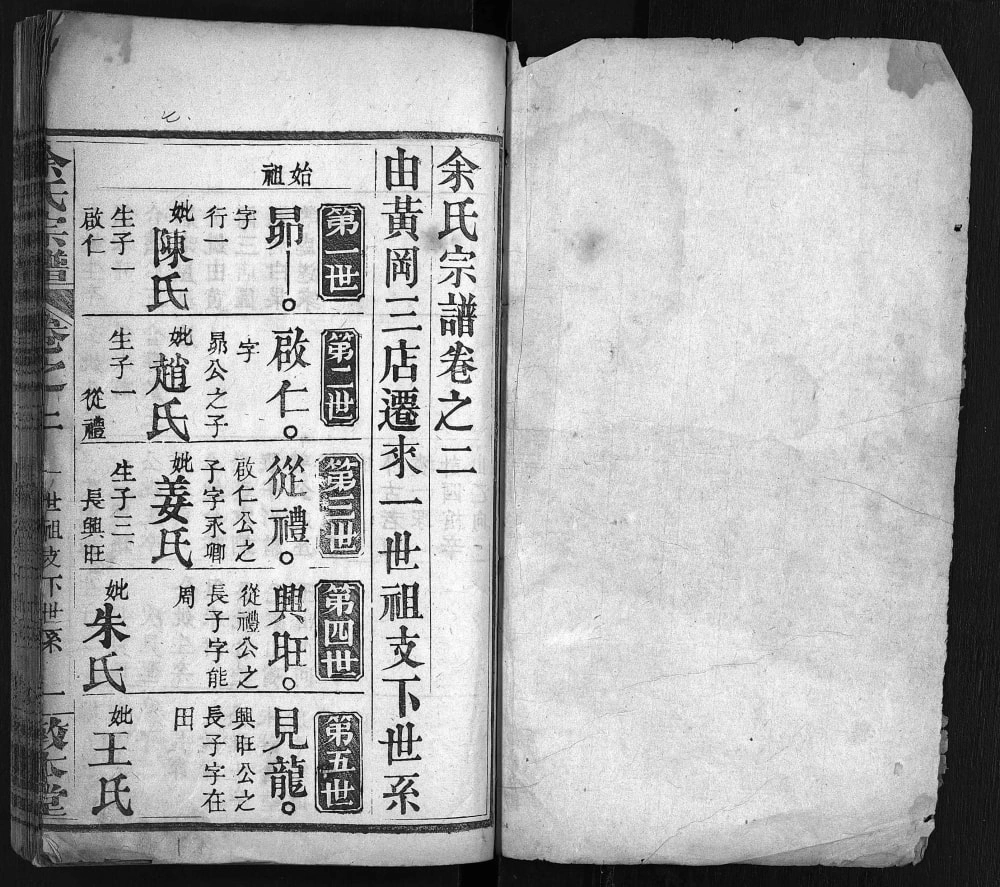 余氏宗譜卷之二
由黃岡三店遷來一世祖支下世系
始祖
第一世
昴一。
字
行一
妣陳氏
生子一
啟仁
第二世
啟仁。
字
昴公之子
妣趙氏
生子一
從禮
第三世
從禮。
啟仁公之
子字永卿
妣姜氏
生子三
長興旺
第四世
興旺。
從禮公之
長子字能
周
妣朱氏
第五世
見龍。
興旺公之
長子字在
田
妣王氏
余氏宗譜
卷之二
一世祖支下世系
一
敦本堂
七